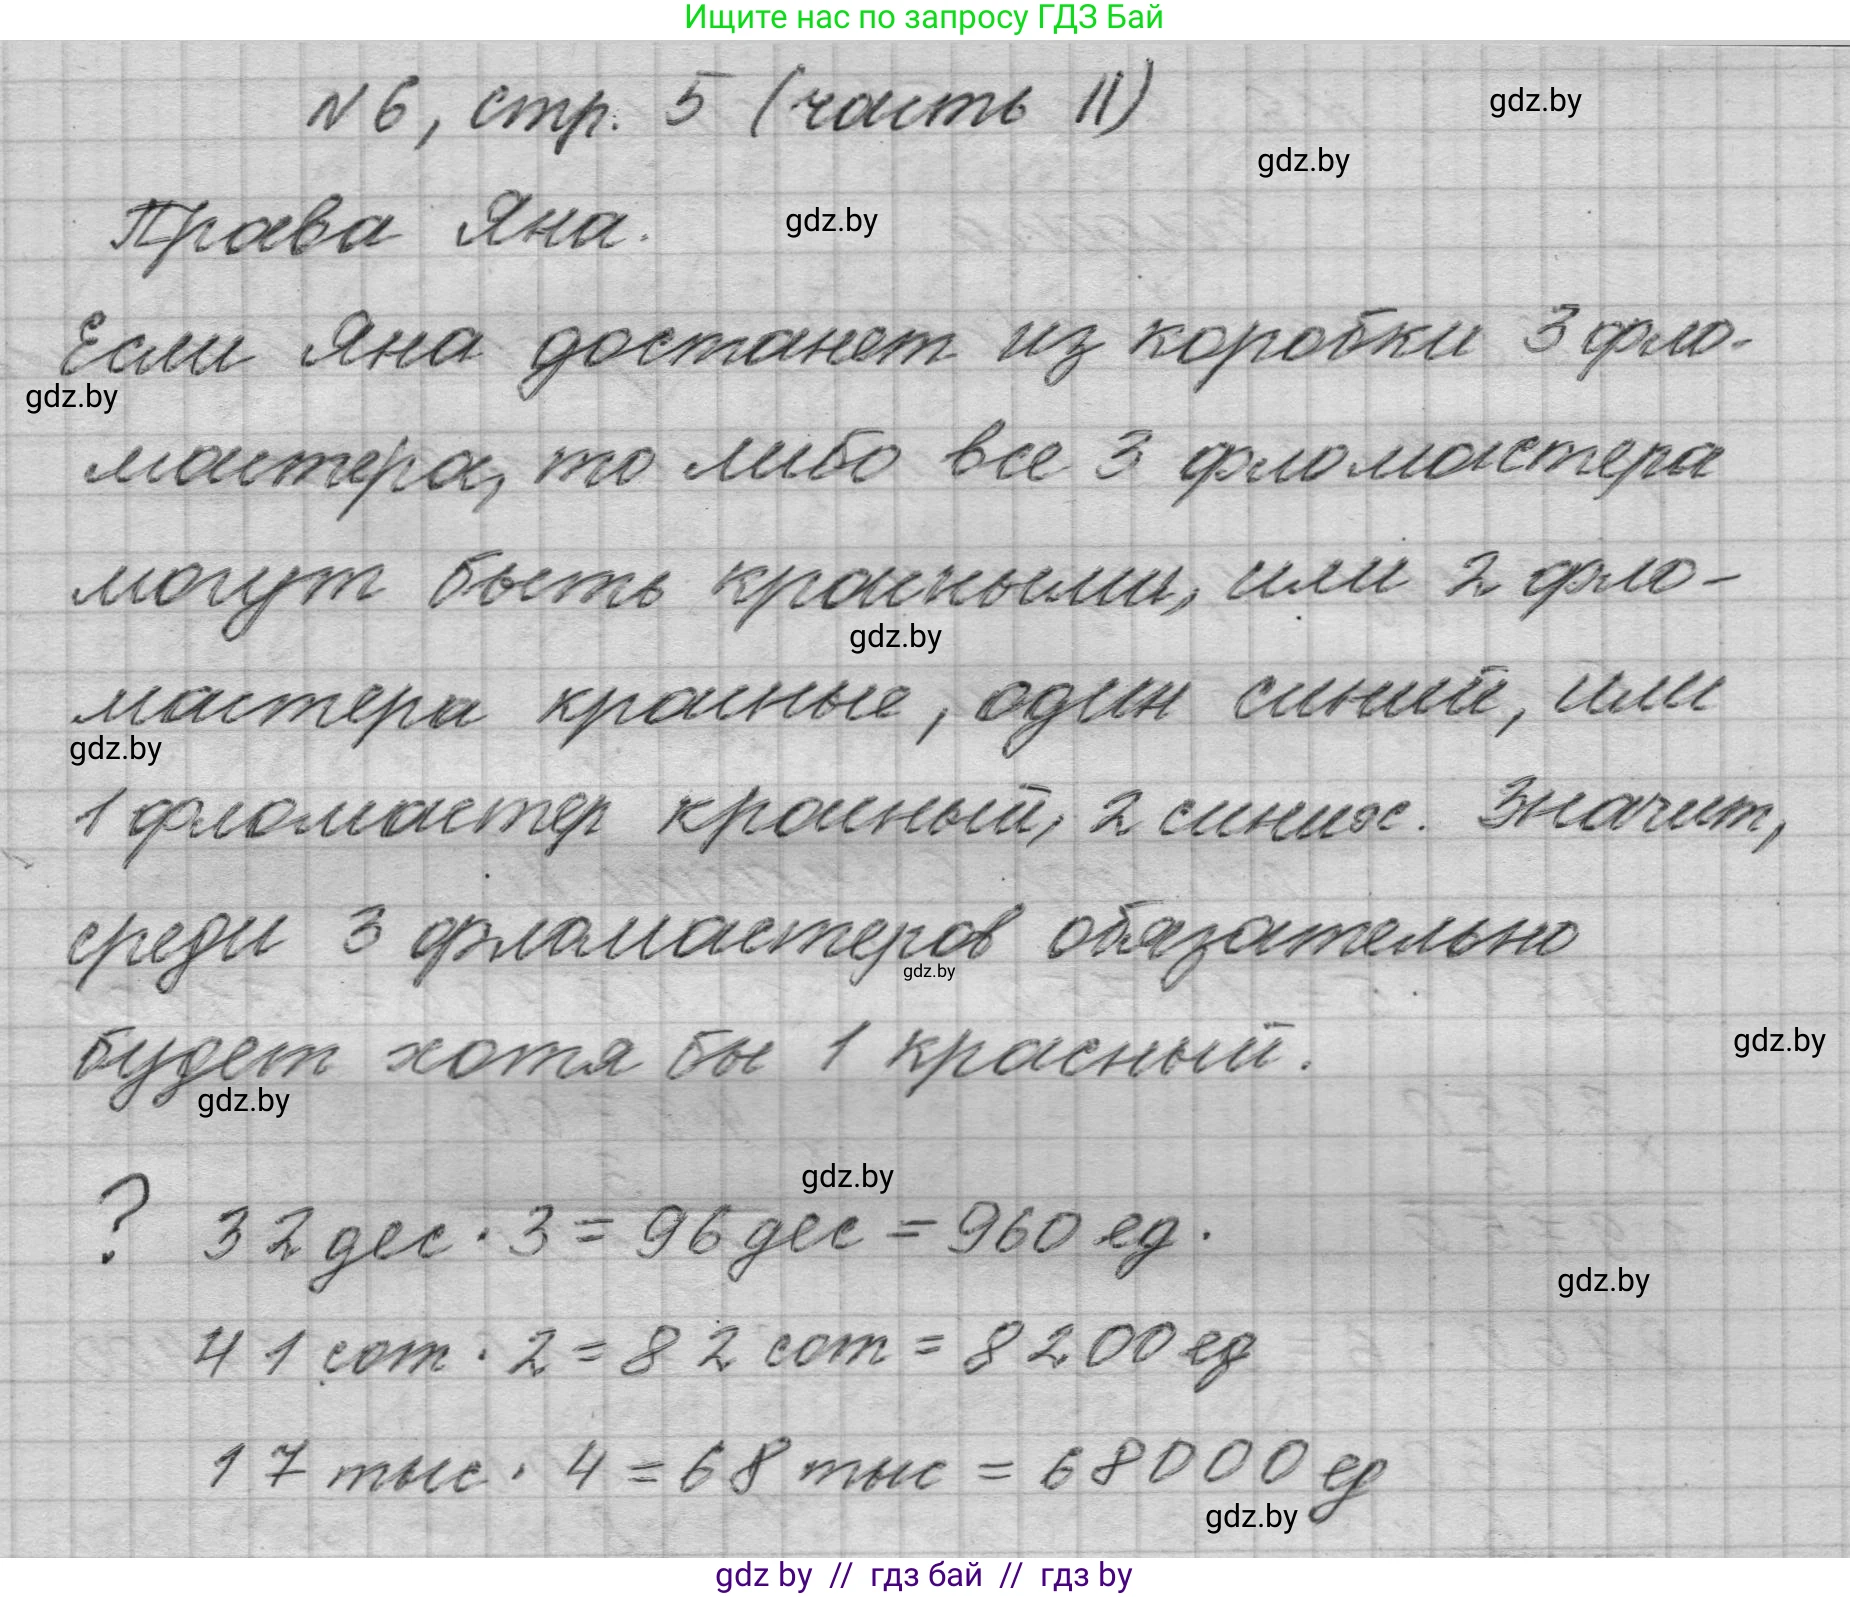 Ищите нас по запросу ГДЗ Бай
№6, стр. 5 (часть II)
gdz.by
gdz.by
Права Яна.
gdz.by
Если Яна достанет из коробки 3 фло-
gdz.by
мастера, то либо все 3 фломастера
могут быть красными, или 2 фло-
gdz.by
мастера красные, один синий, или
gdz.by
1 фломастер красный, 2 синих. Значит,
среди 3 фломастеров обязательно
gdz.by
будет хотя бы 1 красный.
gdz.by
gdz.by
gdz.by
? 32 дес · 3 = 96 дес = 960 ед.
gdz.by
41 сот · 2 = 82 сот = 8200 ед
17 тыс · 4 = 68 тыс = 68000 ед
gdz.by
gdz by // гдз бай // гдз by